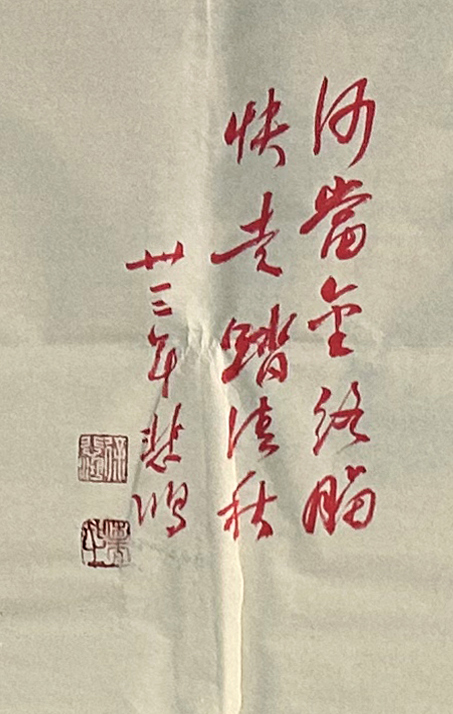 何當金络腦
快走踏清秋
卅三年悲鴻